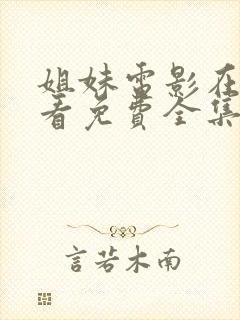 姐妹雷影在
看免费全集
言若木南